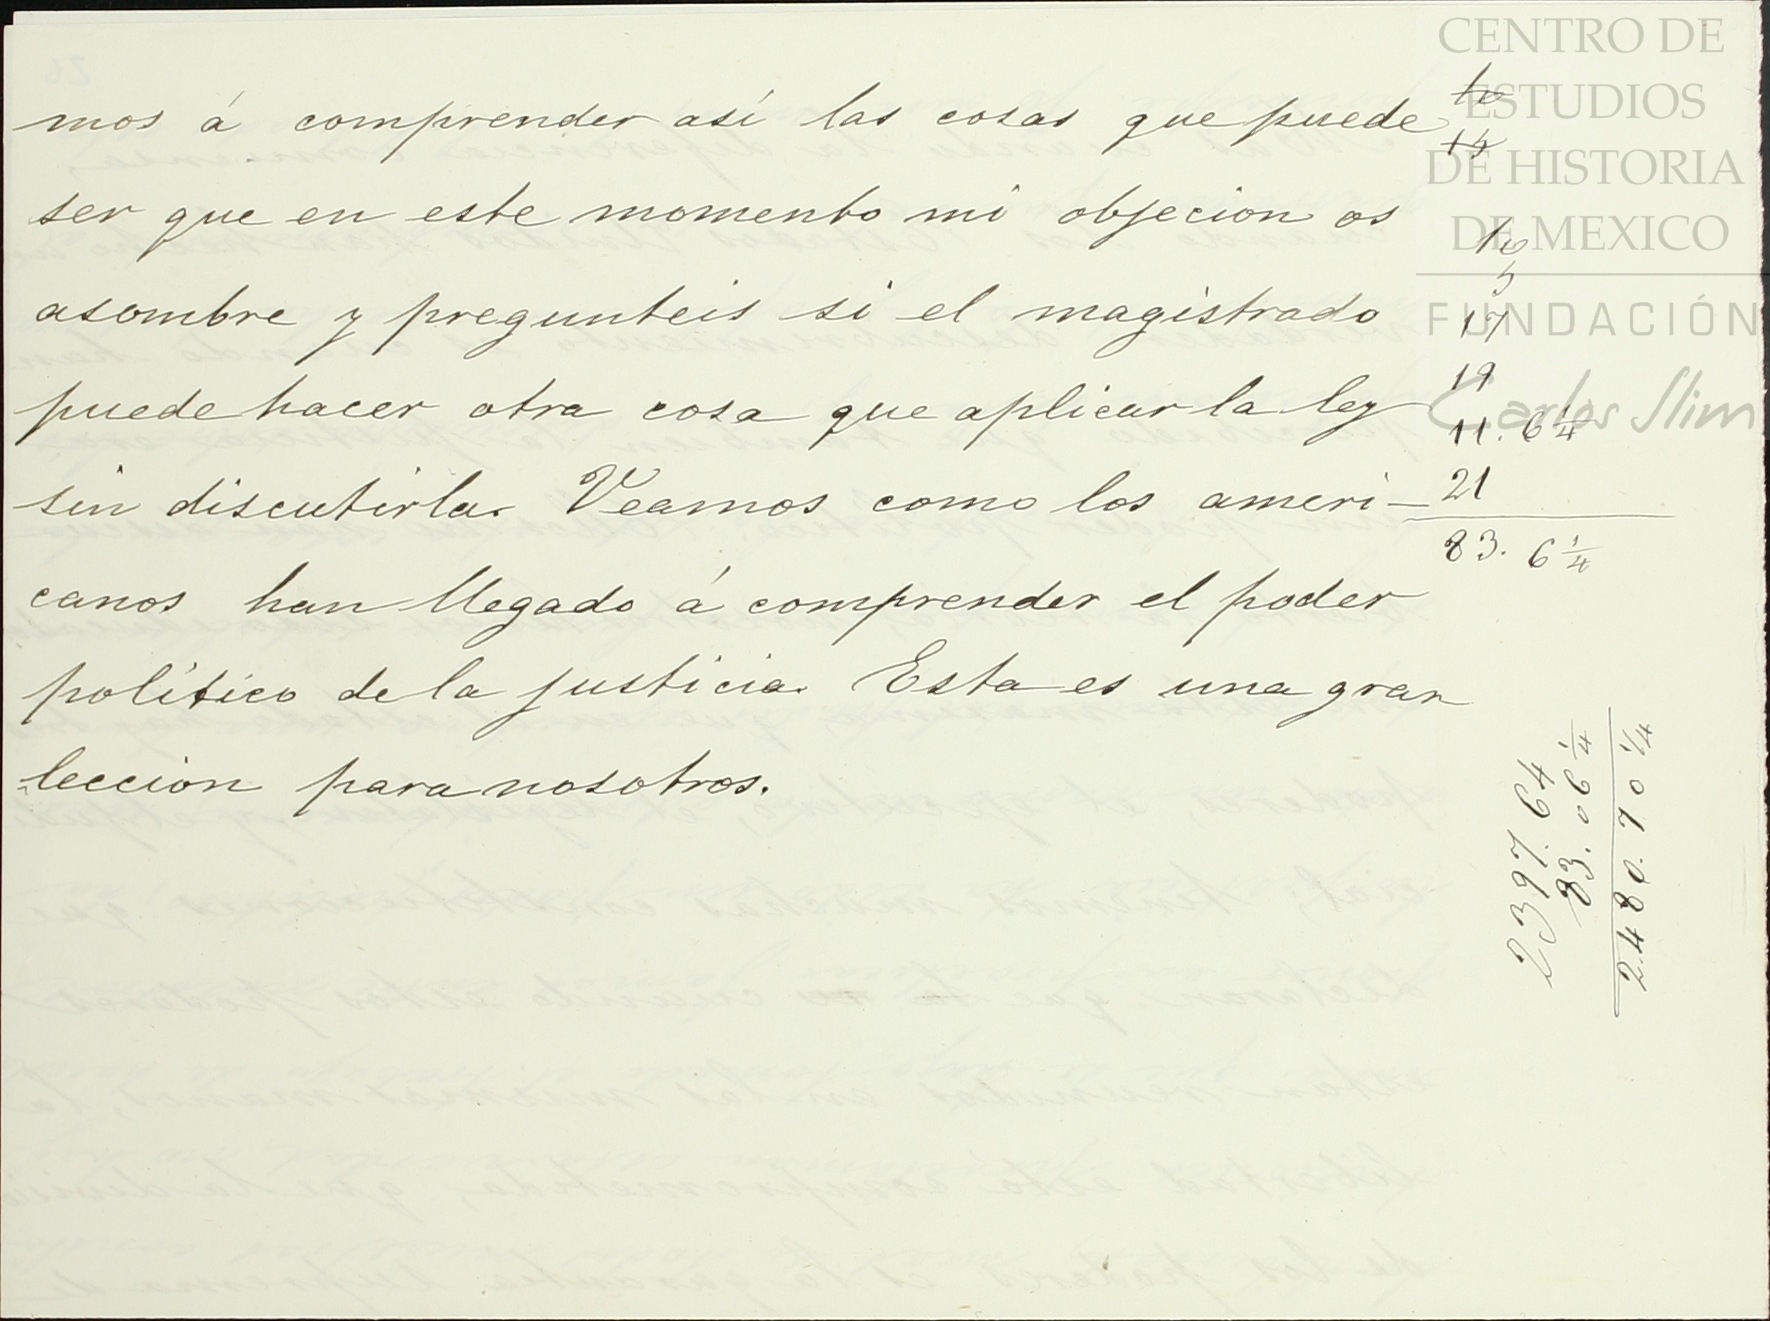 mos á comprender así las cosas que puede
ser que en este momento mi objecion os
asombre y pregunteis si el magistrado
puede hacer otra cosa que aplicar la ley
sin discutirla. Veamos como los ameri-
canos han llegado á comprender el poder
político de la justicia. Esta es una gran
leccion para nosotros.
14
10
5
17
19
11. 6 1/4
21
83. 6 1/4
2397.64
83.06 1/4
2480.70 1/4
CENTRO DE
ESTUDIOS
DE HISTORIA
DE MEXICO
FUNDACIÓN
Carlos Slim